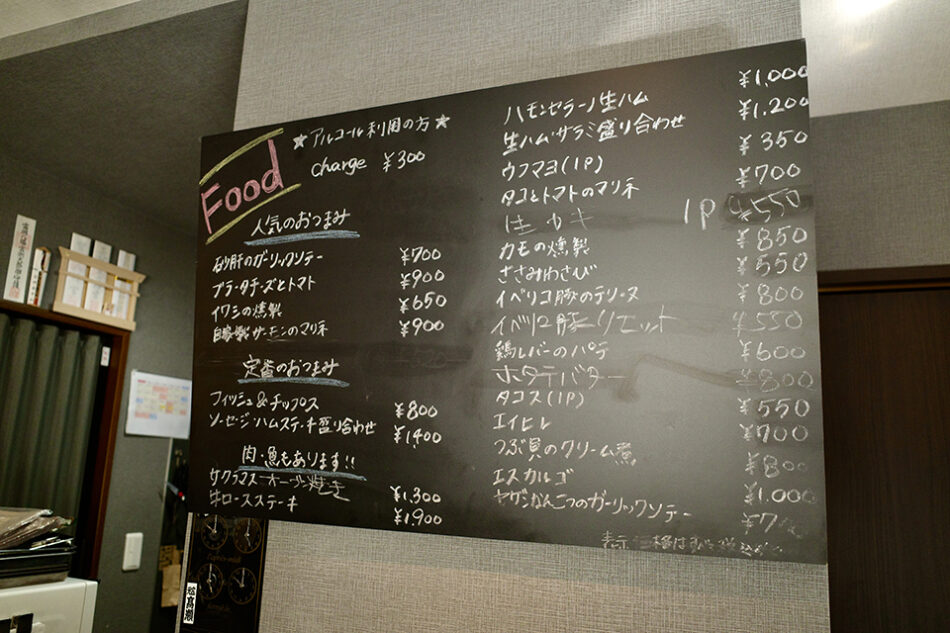 Food
★アルコール利用の方★
charge ¥300
人気のおつまみ
砂肝のガーリックソテー ¥700
ブラータチーズとトマト ¥900
イワシの燻製 ¥650
自家製サーモンのマリネ ¥900
定番のおつまみ
フィッシュ&チップス ¥800
ソーセージ・ハムステーキ盛り合わせ ¥1,400
肉・魚もあります!!
サクラマスオーブン焼き ¥1,300
牛ロースステーキ ¥1,900
ハモンセラーノ生ハム ¥1,000
生ハム・サラミ盛り合わせ ¥1,200
ウフマヨ(1P) ¥350
タコとトマトのマリネ ¥700
生カキ 1P ¥550
カモの燻製 ¥850
ささみわさび ¥550
イベリコ豚のテリーヌ ¥800
イベリコ豚リエット ¥550
鶏レバーのパテ ¥600
ホタテバター ¥800
タコス(1P) ¥550
エイヒレ ¥700
つぶ貝のクリーム煮 ¥800
エスカルゴ ¥1,000
ヤゲンなんこつのガーリックソテー
表示価格は